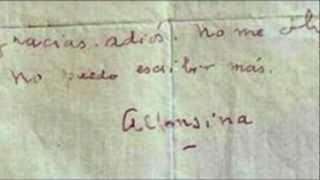 gracias. adiós. No me
No puedo escribir más.
Alfonsina